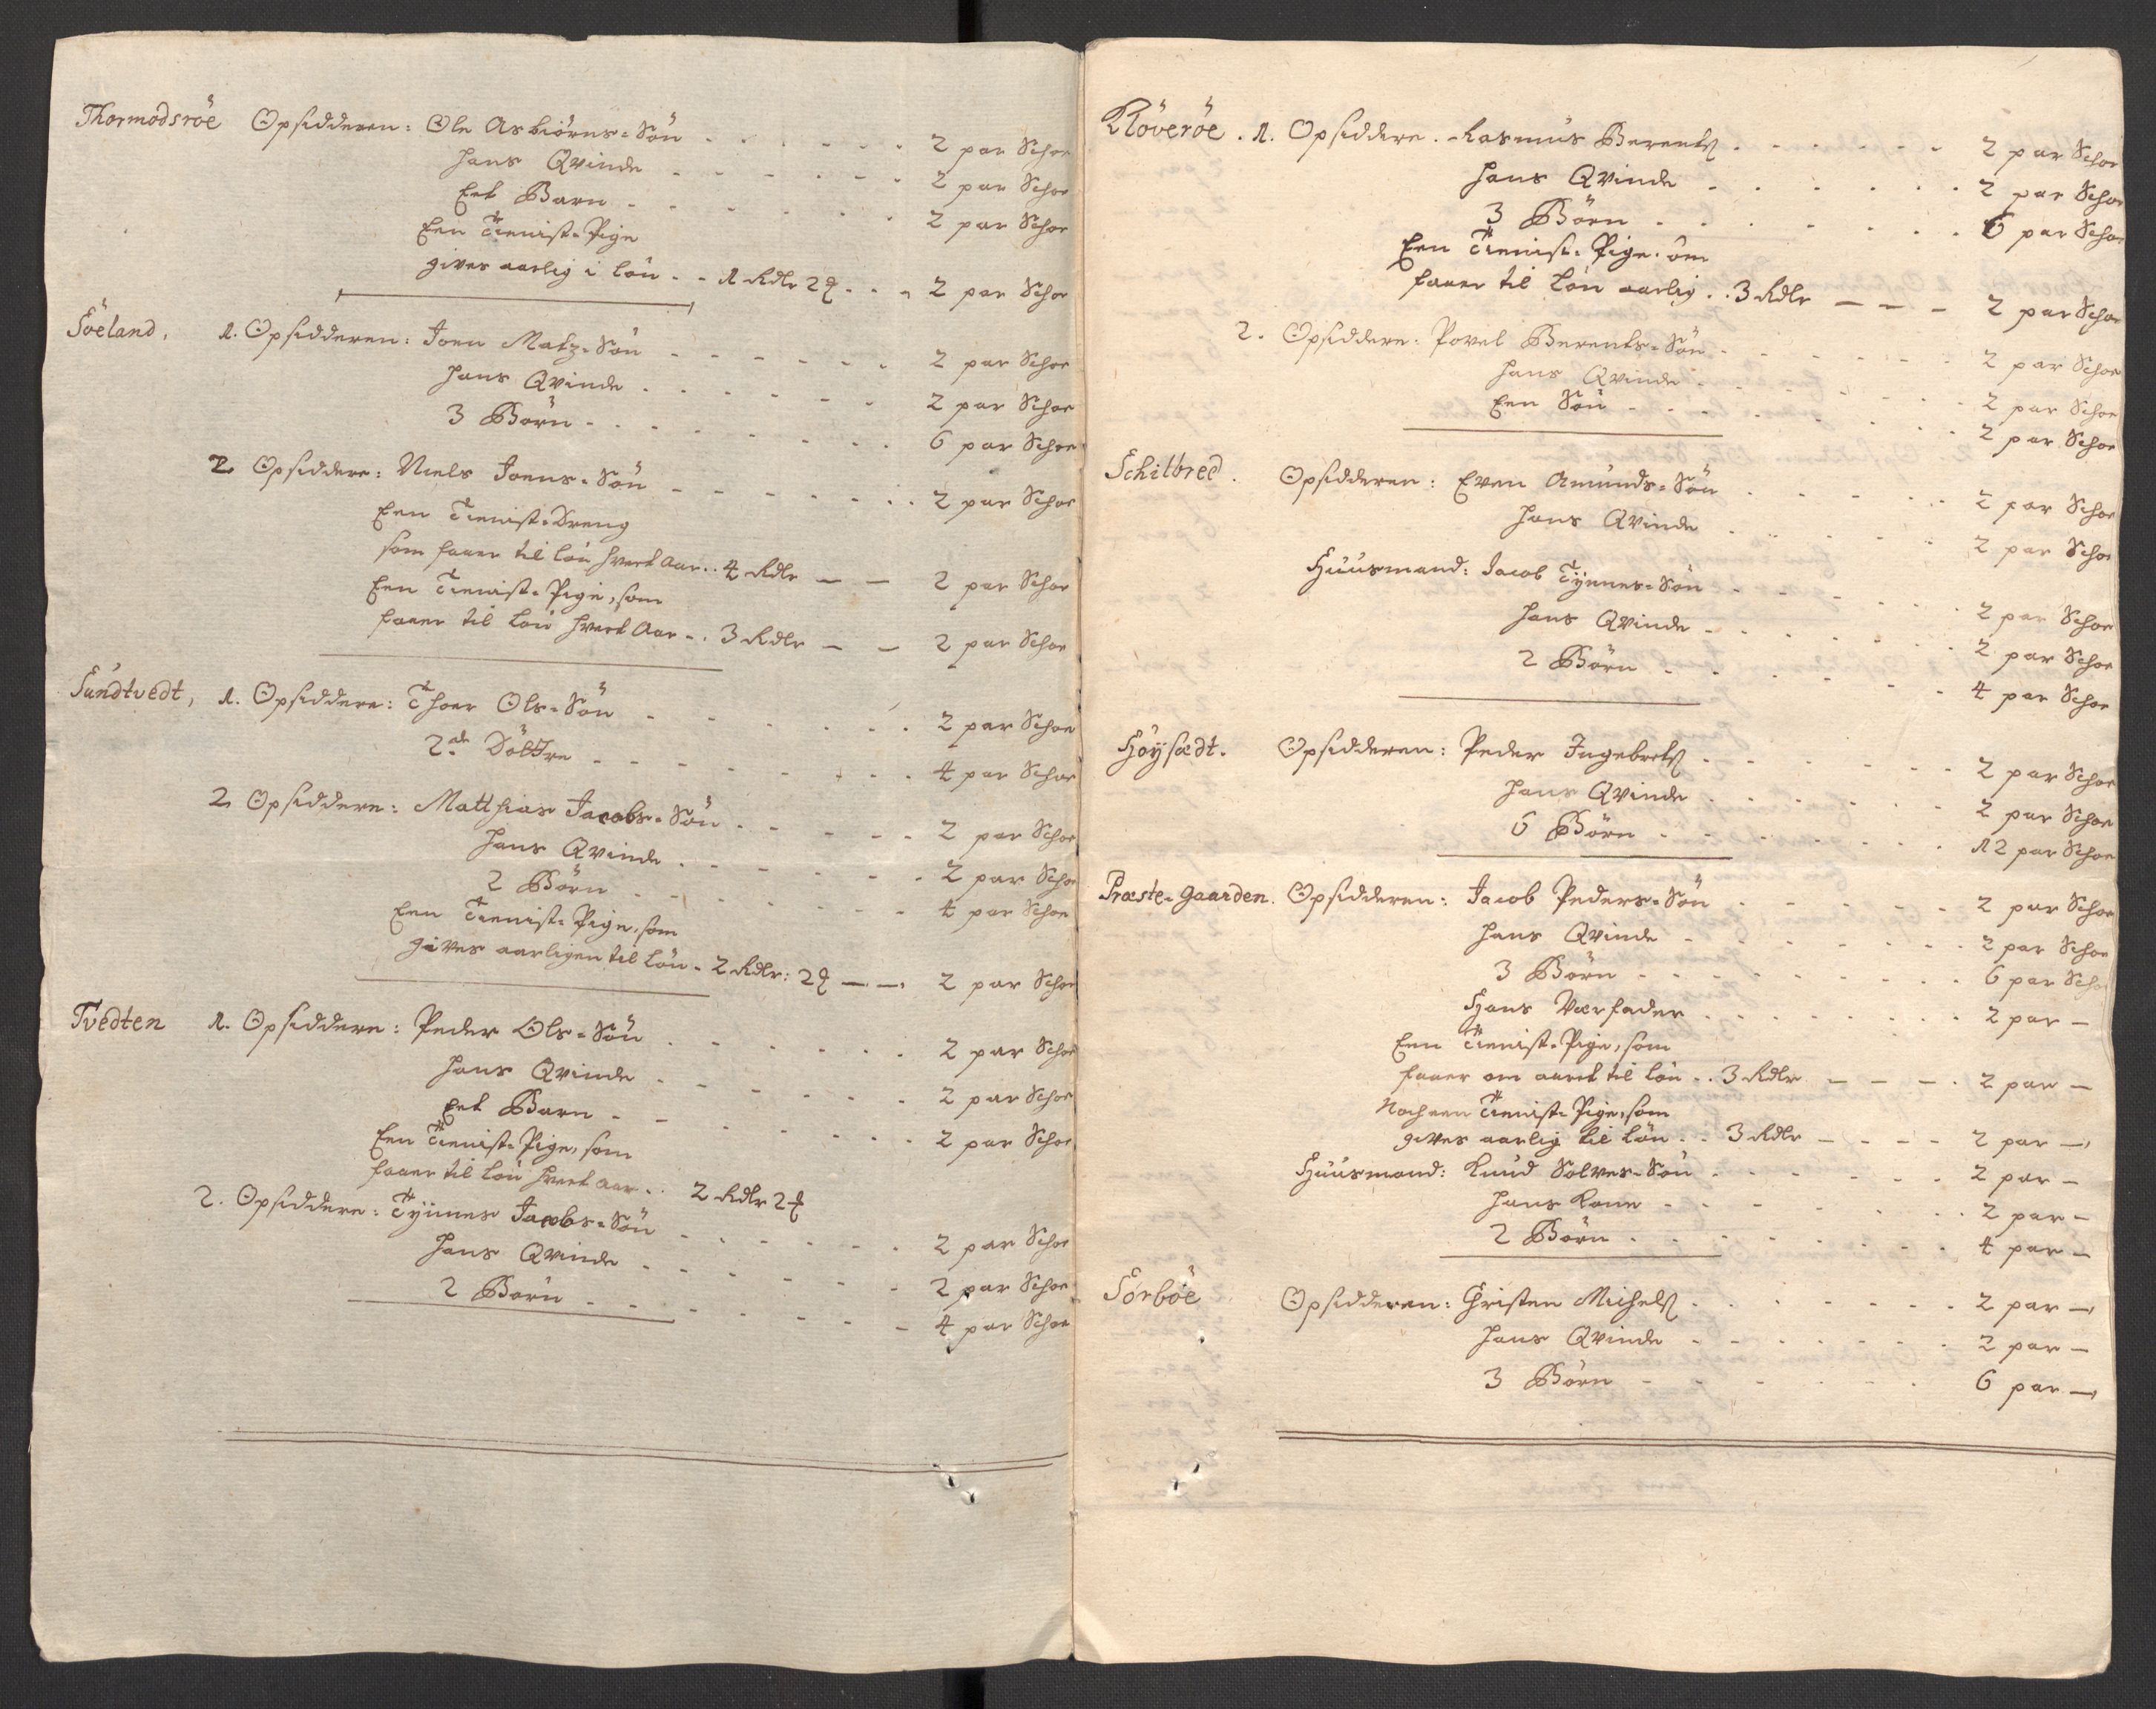 Thormodsröe Opsidderen: Ole Asbiörns=Sön - - - - - - 2 par Schoe
Hans Qvinde - - - - - - 2 par Schoe
Eet Barn - - - - - - 2 par Schoe
Een Tienist-Pige
gives aarlig i Lön - - 1 Rdlr 2 ₰ - - - 2 par Schoe
Söeland, 1. Opsidderen: Joen Matz-Sön - - - - - - 2 par Schoe
Hans Qvinde - - - - - - 2 par Schoe
3 Börn - - - - - - - 6 par Schoe
2 Opsiddere: Niels Joens-Sön - - - - - - 2 par Schoe
Een Tienist-Dreng
som faaer til Lön hvert Aar . . 4 Rdlr — — 2 par Schoe
Een Tienist-Pige, som
faaer til Lön hvert Aar - . 3 Rdlr — — 2 par Schoe
Sundtvedt, 1. Opsiddere: Thoer Ols-Sön - - - - - - 2 par Schoe
2de Döttre - - - - - - - 4 par Schoe
2 Opsiddere: Matthias Jacobs-Sön - - - - - 2 par Schoe
Hans Qvinde - - - - - - 2 par Schoe
2 Börn - - - - - - - 4 par Schoe
Een Tienist-Pige, som
gives aarligen til Lön - 2 Rdlr: 2 ₰ — — 2 par Schoe
Tvedten 1. Opsiddere: Peder Ols-Sön - - - - - - 2 par Schoe
Hans Qvinde - - - - - - 2 par Schoe
Eet Barn - - - - - - - 2 par Schoe
Een Tienist-Pige, som
faaer til Lön hvert Aar - . 2 Rdlr 2 ₰
2. Opsiddere: Tynnes Jacobs-Sön - - - - - - 2 par Schoe
Hans Qvinde - - - - - - 2 par Schoe
2 Börn - - - - - - - 4 par Schoe
Klöveröe . 1. Opsiddere . Rasmus Berents - - - - - - 2 par Schoe
Hans Qvinde - - - - - - 2 par Schoe
3 Börn - - - - - - - 6 par Schoe
Een Tienist-Pige som
faaer til Lön aarlig . . 3 Rdlr — — — 2 par Schoe
2. Opsiddere: Povel Berents-Sön - - - - - - 2 par Schoe
Hans Qvinde - - - - - - 2 par Schoe
Een Sön - - - - - - - 2 par Schoe
Schilbred . Opsidderen: Even Amunds-Sön - - - - - 2 par Schoe
Hans Qvinde - - - - - - 2 par Schoe
Huusmand: Jacob Tynnes-Sön - - - - - - 2 par Schoe
Hans Qvinde - - - - - - 2 par Schoe
2 Börn - - - - - - 4 par Schoe
Höysædt. Opsidderen: Peder Ingebrets - - - - - - 2 par Schoe
Hans Qvinde - - - - - - 2 par Schoe
6 Börn - - - - - - - 12 par Schoe
Præste-gaarden. Opsidderen: Jacob Peders-Sön - - - - - 2 par Schoe
Hans Qvinde - - - - - - - 2 par Schoe
3 Börn - - - - - - - - 6 par Schoe
Hans Værfader - - - - - - - 2 par —
Een Tienist-Pige, som
faaer om aaret til Lön - . 3 Rdlr - - - - 2 par —
Noch een Tienist-Pige, som
gives aarlig til Lön . . 3 Rdlr - - - - 2 par —
Huusmand: Knud Solves-Sön - - - - - - 2 par —
Hans Kone - - - - - - - 2 par —
2 Börn - - - - - - - - 4 par —
Sörböe Opsidderen: Christen Michels - - - - - - - 2 par —
Hans Qvinde - - - - - - - 2 par —
3 Börn - - - - - - - 6 par —